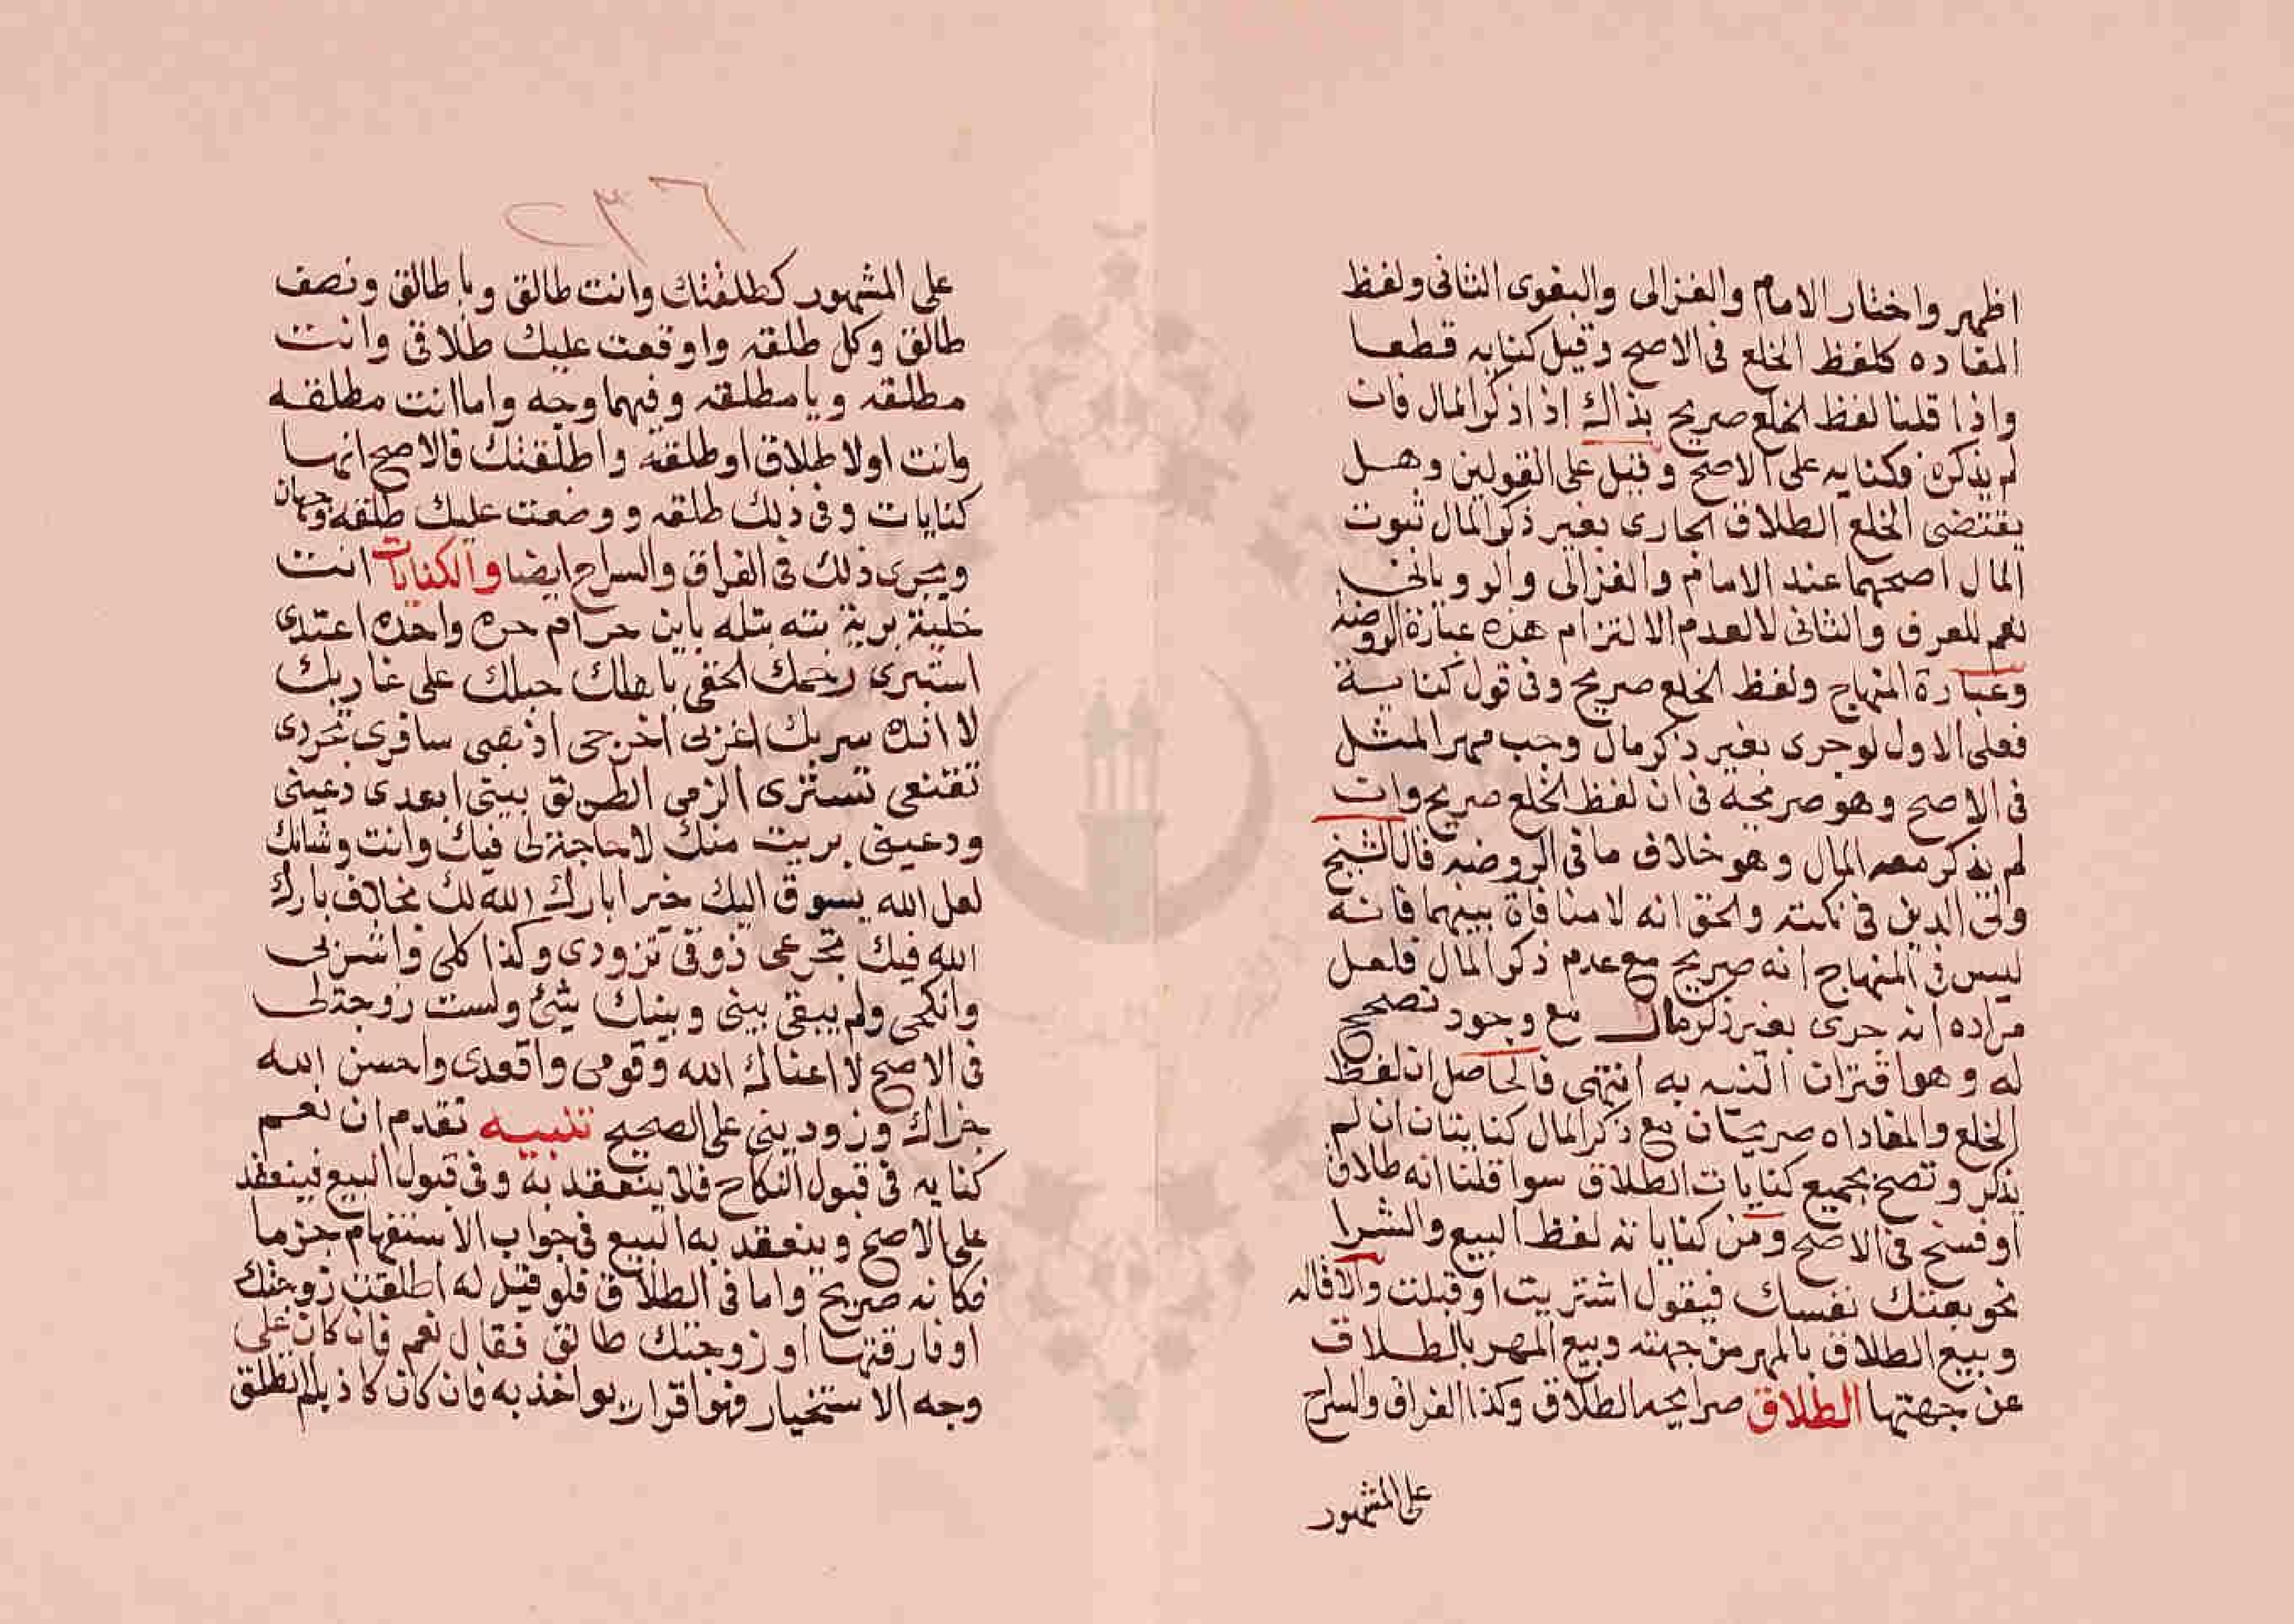 اظهر واختار الامام والغزالى والبغوى الثانى ولفظ
المفاده كلفظ الخلع فى الاصح وقيل كنايه قطعا
واذا قلنا لفظ الخلع صريح بذاك اذا ذكر المال فان
لم يذكر فكنايه على الاصح وقيل على القولين وهل
يقتضى الخلع الطلاق الجارى بغير ذكر المال ثبوت
المال اصحهما عند الامام والغزالى والرويانى
نعم للعرف والثانى لا لعدم الالتزام هذه عبارة الروضه
وعبارة المنهاج ولفظ الخلع صريح وفى قول كناية
فعلى الاول لو جرى بغير ذكر مال وجب مهر المثل
فى الاصح وهو صريحة فى ان لفظ الخلع صريح وان
لم يذكر معه المال وهو خلاف ما فى الروضه قال الشيخ
ولى الدين فى نكته والحق انه لا منافاة بينهما فانه
ليس فى المنهاج انه صريح مع عدم ذكر المال فلعل
مراده انه جرى بغير ذكر مال مع وجود تصحيح
له وهو اقتران النيه به انتهى فالحاصل ان لفظ
الخلع والمفاداه صريحان مع ذكر المال كنايتان ان لم
يذكر وتصح بجميع كنايات الطلاق سوا قلنا انه طلاق
او فسخ فى الاصح ومن كناياته لفظ البيع والشرا
نحو بعتك نفسك فيقول اشتريت او قبلت والاقاله
وبيع الطلاق بالمهر من جهته وبيع المهر بالطلاق
عن جهتها الطلاق صرايحه الطلاق وكذا الفراق والسراح
على المشهور
٢٣٦
على المشهور كطلقتك وانت طالق ويا طالق ونصف
طالق وكل طلقه واوقعت عليك طلاقى وانت
مطلقه ويا مطلقه وفيهما وجه واما انت مطلقه
وانت اولا طلاق او طلقة واطلقتك فالاصح انها
كنايات وفى ذلك طلقه ووضعت عليك طلقه وجهان
ويجرى ذلك فى الفراق والسراح ايضا والكنايات انت
خلية برية بته بتله باين حرام حره واحده اعتدى
استبرى رحمك الحقى باهلك حبلك على غاربك
لا انده سربك اغربى اخرجى اذهبى سافرى تجردى
تقنعى تسترى الزمى الطريق بينى ابعدى دعينى
ودعينى بريت منك لا حاجة لى فيك وانت وشانك
لعل الله يسوق اليك خيرا بارك الله لك بخلاف بارك
الله فيك تجرعى ذوقى تزودى وكذا كلى واشربى
وانكحى ولم يبقى بينى وبينك شئ ولست زوجة لى
فى الاصح لا اغناك الله وقومى واقعدى واحسن الله
جزاك وزودينى على الصحيح تنبيه تقدم ان نعم
كنايه فى قبول النكاح فلا ينعقد به وفى قبول البيع فينعقد
على الاصح وينعقد به البيع فى جواب الاستفهام جزما
فكانه صريح واما فى الطلاق فلو قيل له اطلقت زوجتك
او فارقتها او زوجتك طالق فقال نعم فان كان على
وجه الاستخبار فهو اقرار يواخذ به فان كان كاذبا لم تطلق